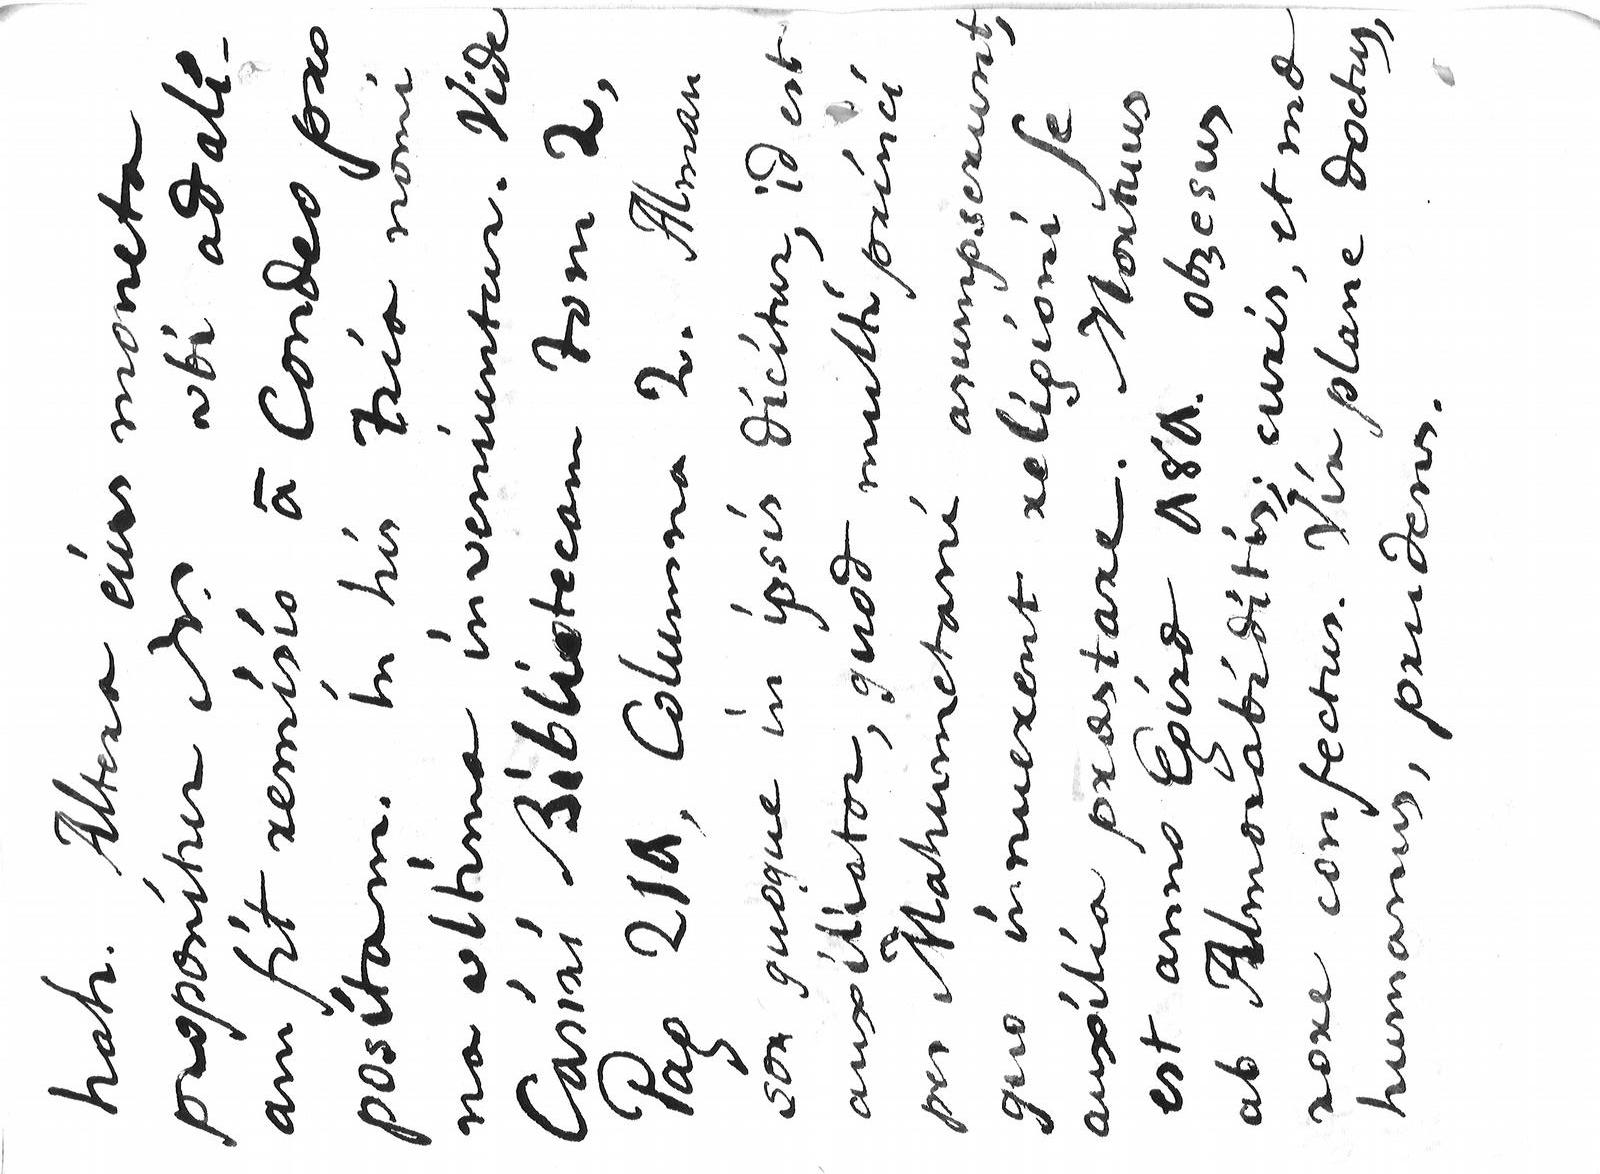 hah. Altera eius moneta
proponitur N. ubi ad ali-
am fit remisio ā Condeo pro
positam. in his tria nomi
na ultima inveniuntur. Vide
Casiri Bibliotecam tom 2,
Pag 211, Columna 2. Alman
sor quoque in ipsis dicitur, id est
auxiliator, quod multi princi
pes Mahumetani asumpserunt,
quo innuerent religioni se
auxilia praestare. Mortuus
est anno Egird 181. obsesus
ab Almorabiditis; curis, et mæ
rore confectus. Vir plane doctus,
humanus, prudens.